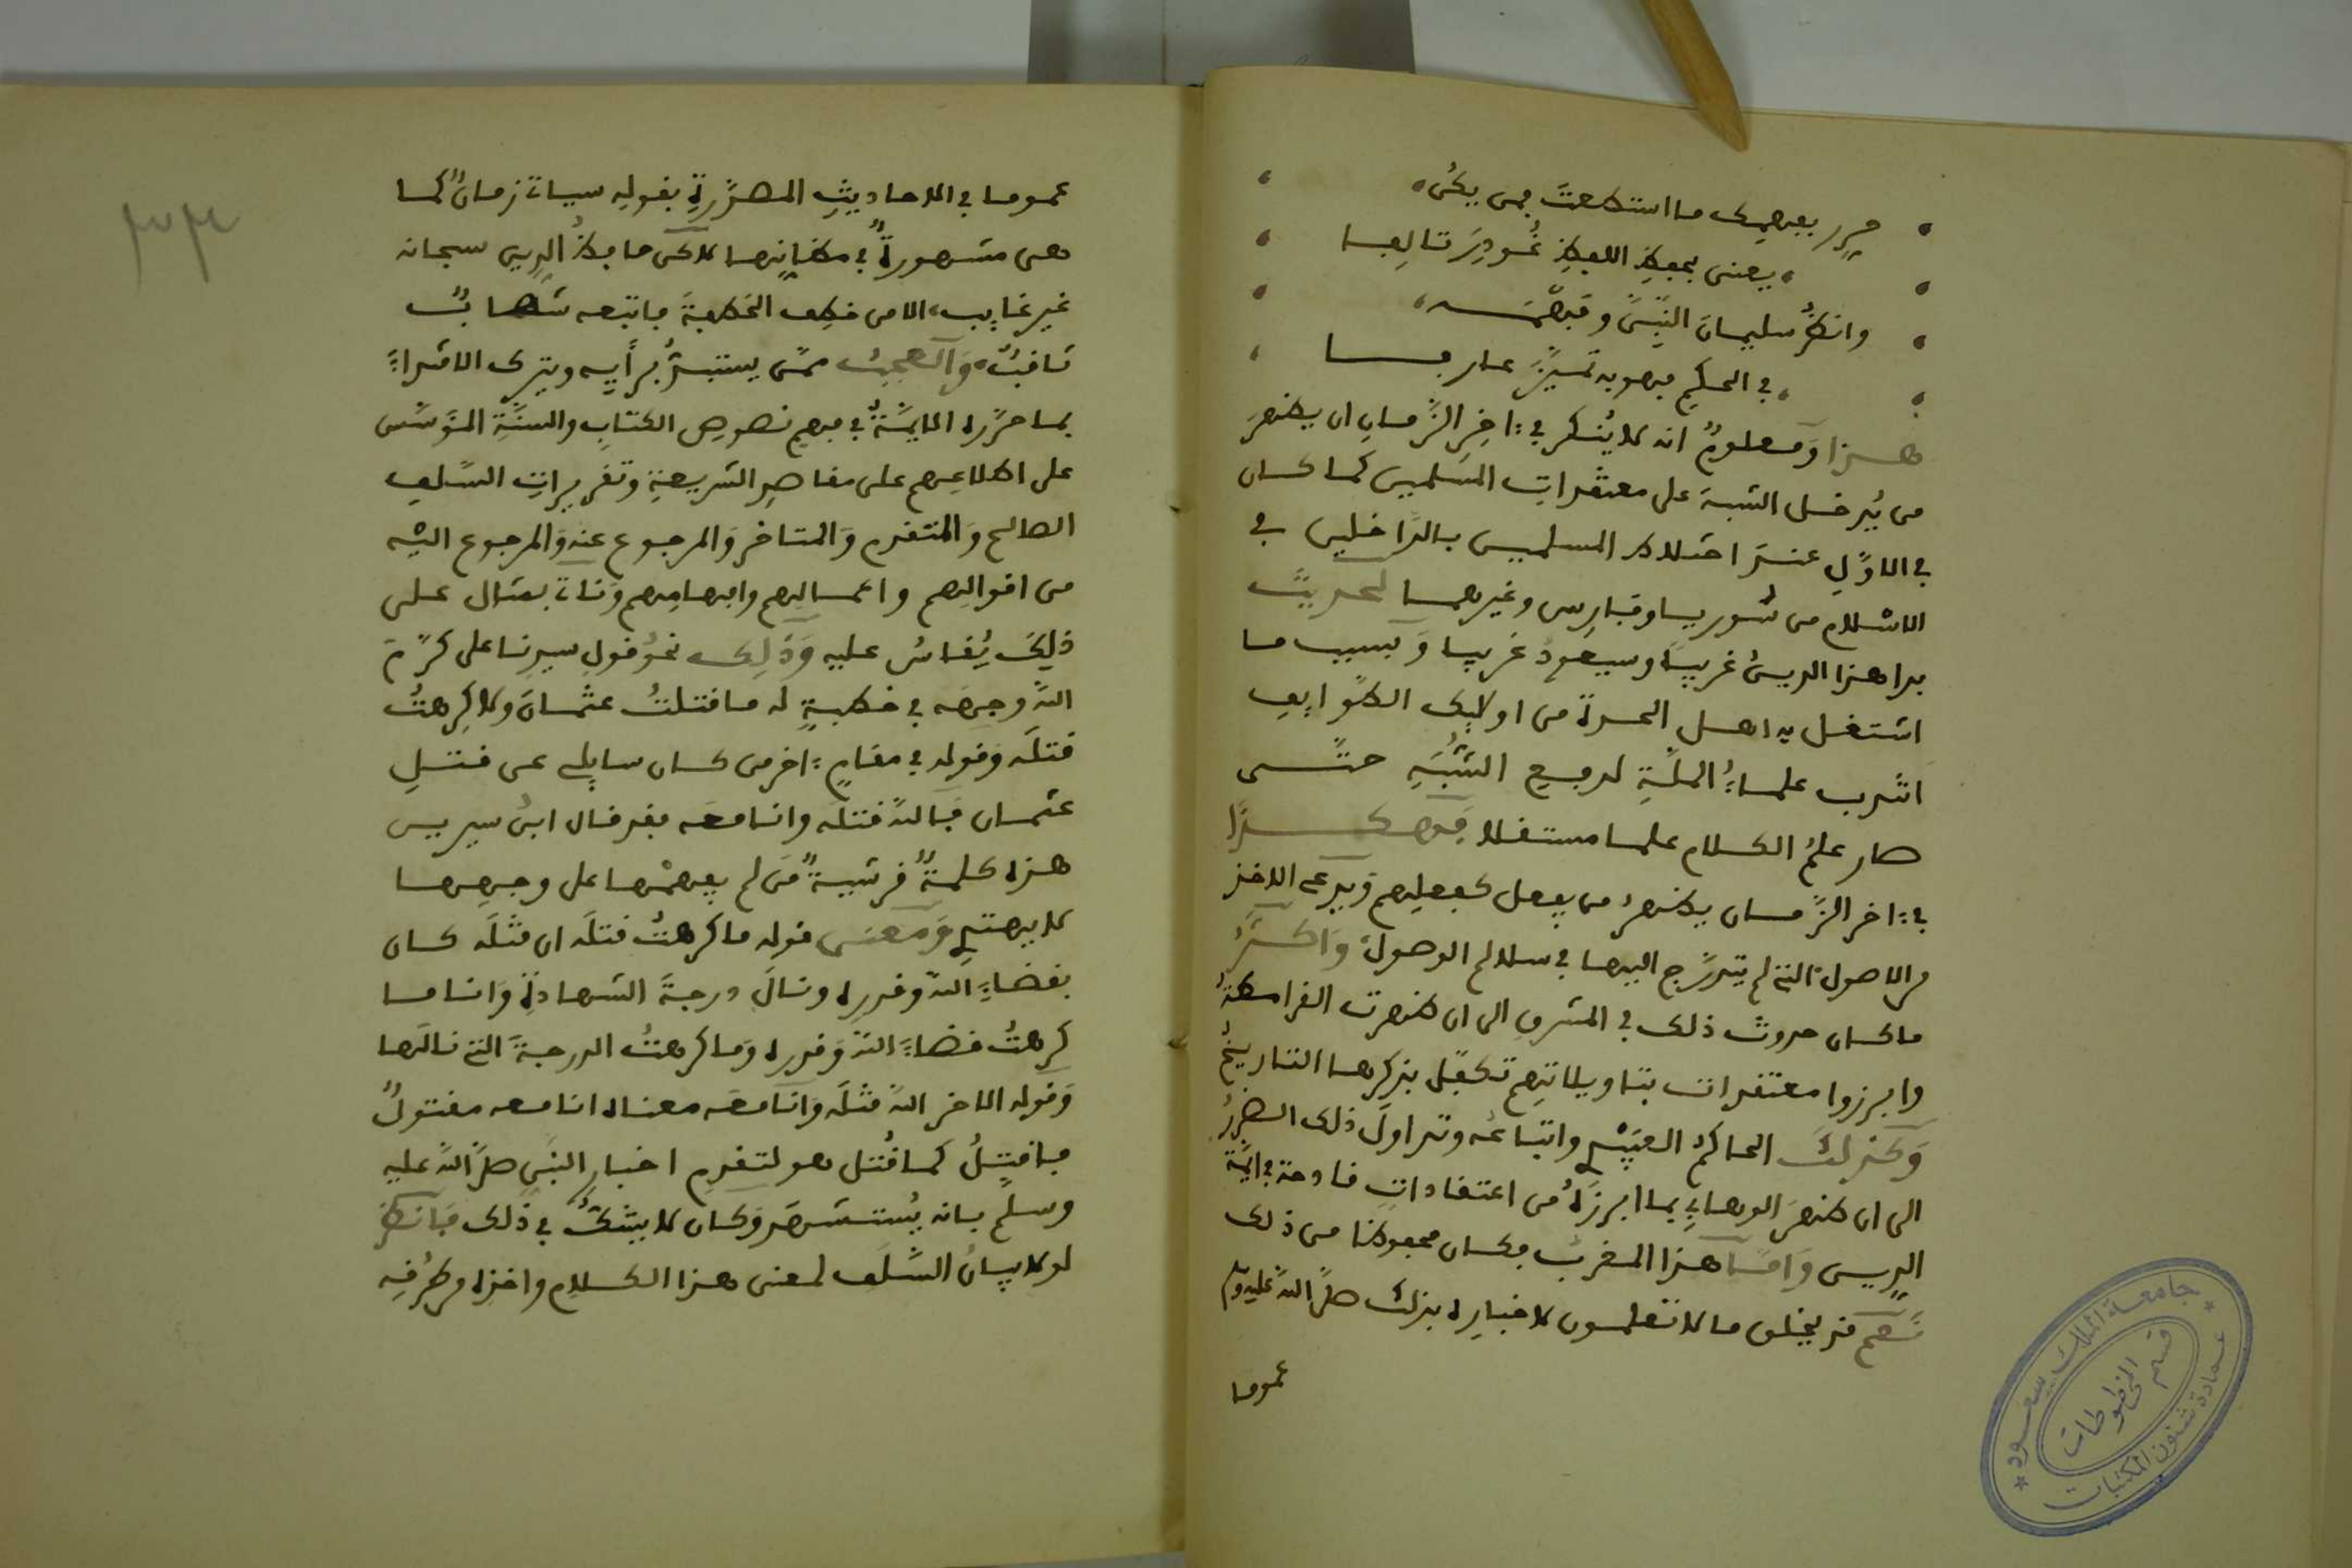 حرر بفهمك ما استطعت فمن يكن
يعنى بحفظ اللفظ غودر تالفا
وانظر سليمان النبي وفهمه
في الحكم فهو به تميز عارفا
هذا ومعلوم انه لا ينكر في ءاخر الزمان ان يظهر
من يدخل الشبه على معتقدات المسلمين كما كان
في الاول عند اختلاط المسلمين بالداخلين في
الاسلام من سوريا وفارس وغيرهما لحديث
بدا هذا الدين غريبا وسيعود غريبا وبسبب ما
اشتغل به اهل الحدة من اولئك الطوايف
انتدب علماء الملة لدفع الشبه حتى
صار علم الكلام علما مستقلا فهكذا
في ءاخر الزمان يظهر من يفعل كفعلهم ويدعى الاخذ
من الاصول التي لم يتدرج اليها في سلالم الوصول واكثر
ما كان حدوث ذلك في المشرق الى ان ظهرت القرامطة
وابرزوا معتقدات بتاويلاتهم تكفل بذكرها التاريخ
وكذلك الحاكم العبيدي واتباعه وتداول ذلك الضرر
الى ان ظهر الوهابي بما ابرزه من اعتقادات قادحة في ايمة
الدين واما هذا المغرب فكان محفوظا من ذلك
نعم قد يخلق ما لا تعلمون لاخباره بذلك صلى الله عليه وسلم
عموما
عموما في الاحاديث المحررة بقوله سياتي زمان كما
هي مشهورة في مظانها لاكن حافظ الدين سبحانه
غير غايب الا من خطف الخطفة فاتبعه شهاب
ثاقب والعجب ممن يستبد برأيه ويترك الاقتداء
بما حرره الايمة في فهم نصوص الكتاب والسنة المؤسس
على اطلاعهم على مقاصد الشريعة وتقريرات السلف
الصالح والمتقدم والمتاخر والمرجوع عنه والمرجوع اليه
من اقوالهم واعمالهم وافهامهم وناتي بمثال على
ذلك يقاس عليه وذلك نحو قول سيدنا علي كرم
الله وجهه في خطبة له ما قتلت عثمان ولا كرهت
قتله وقوله في مقام ءاخر من كان سايلي عن قتل
عثمان فالله قتله وانا معه فقد قال ابن سيرين
هذه كلمة قرشية من لم يفهمها على وجهها
لا يهتد ومعنى قوله ما كرهت قتله ان قتله كان
بقضاء الله وقدره ونال درجة الشهادة وانا ما
كرهت قضاء الله وقدره وما كرهت الدرجة التي نالها
وقوله الاخر الله قتله وانا معه معناه انا معه مقتول
فاقتل كما قتل هو لتقدم اخبار النبي صلى الله عليه
وسلم بانه يستشهد وكان لا يشك في ذلك فانظر
لولا بيان السلف لمعنى هذا الكلام واخذه من طرقه
جامعة الملك سعود
عمادة شئون المكتبات
قسم المخطوطات